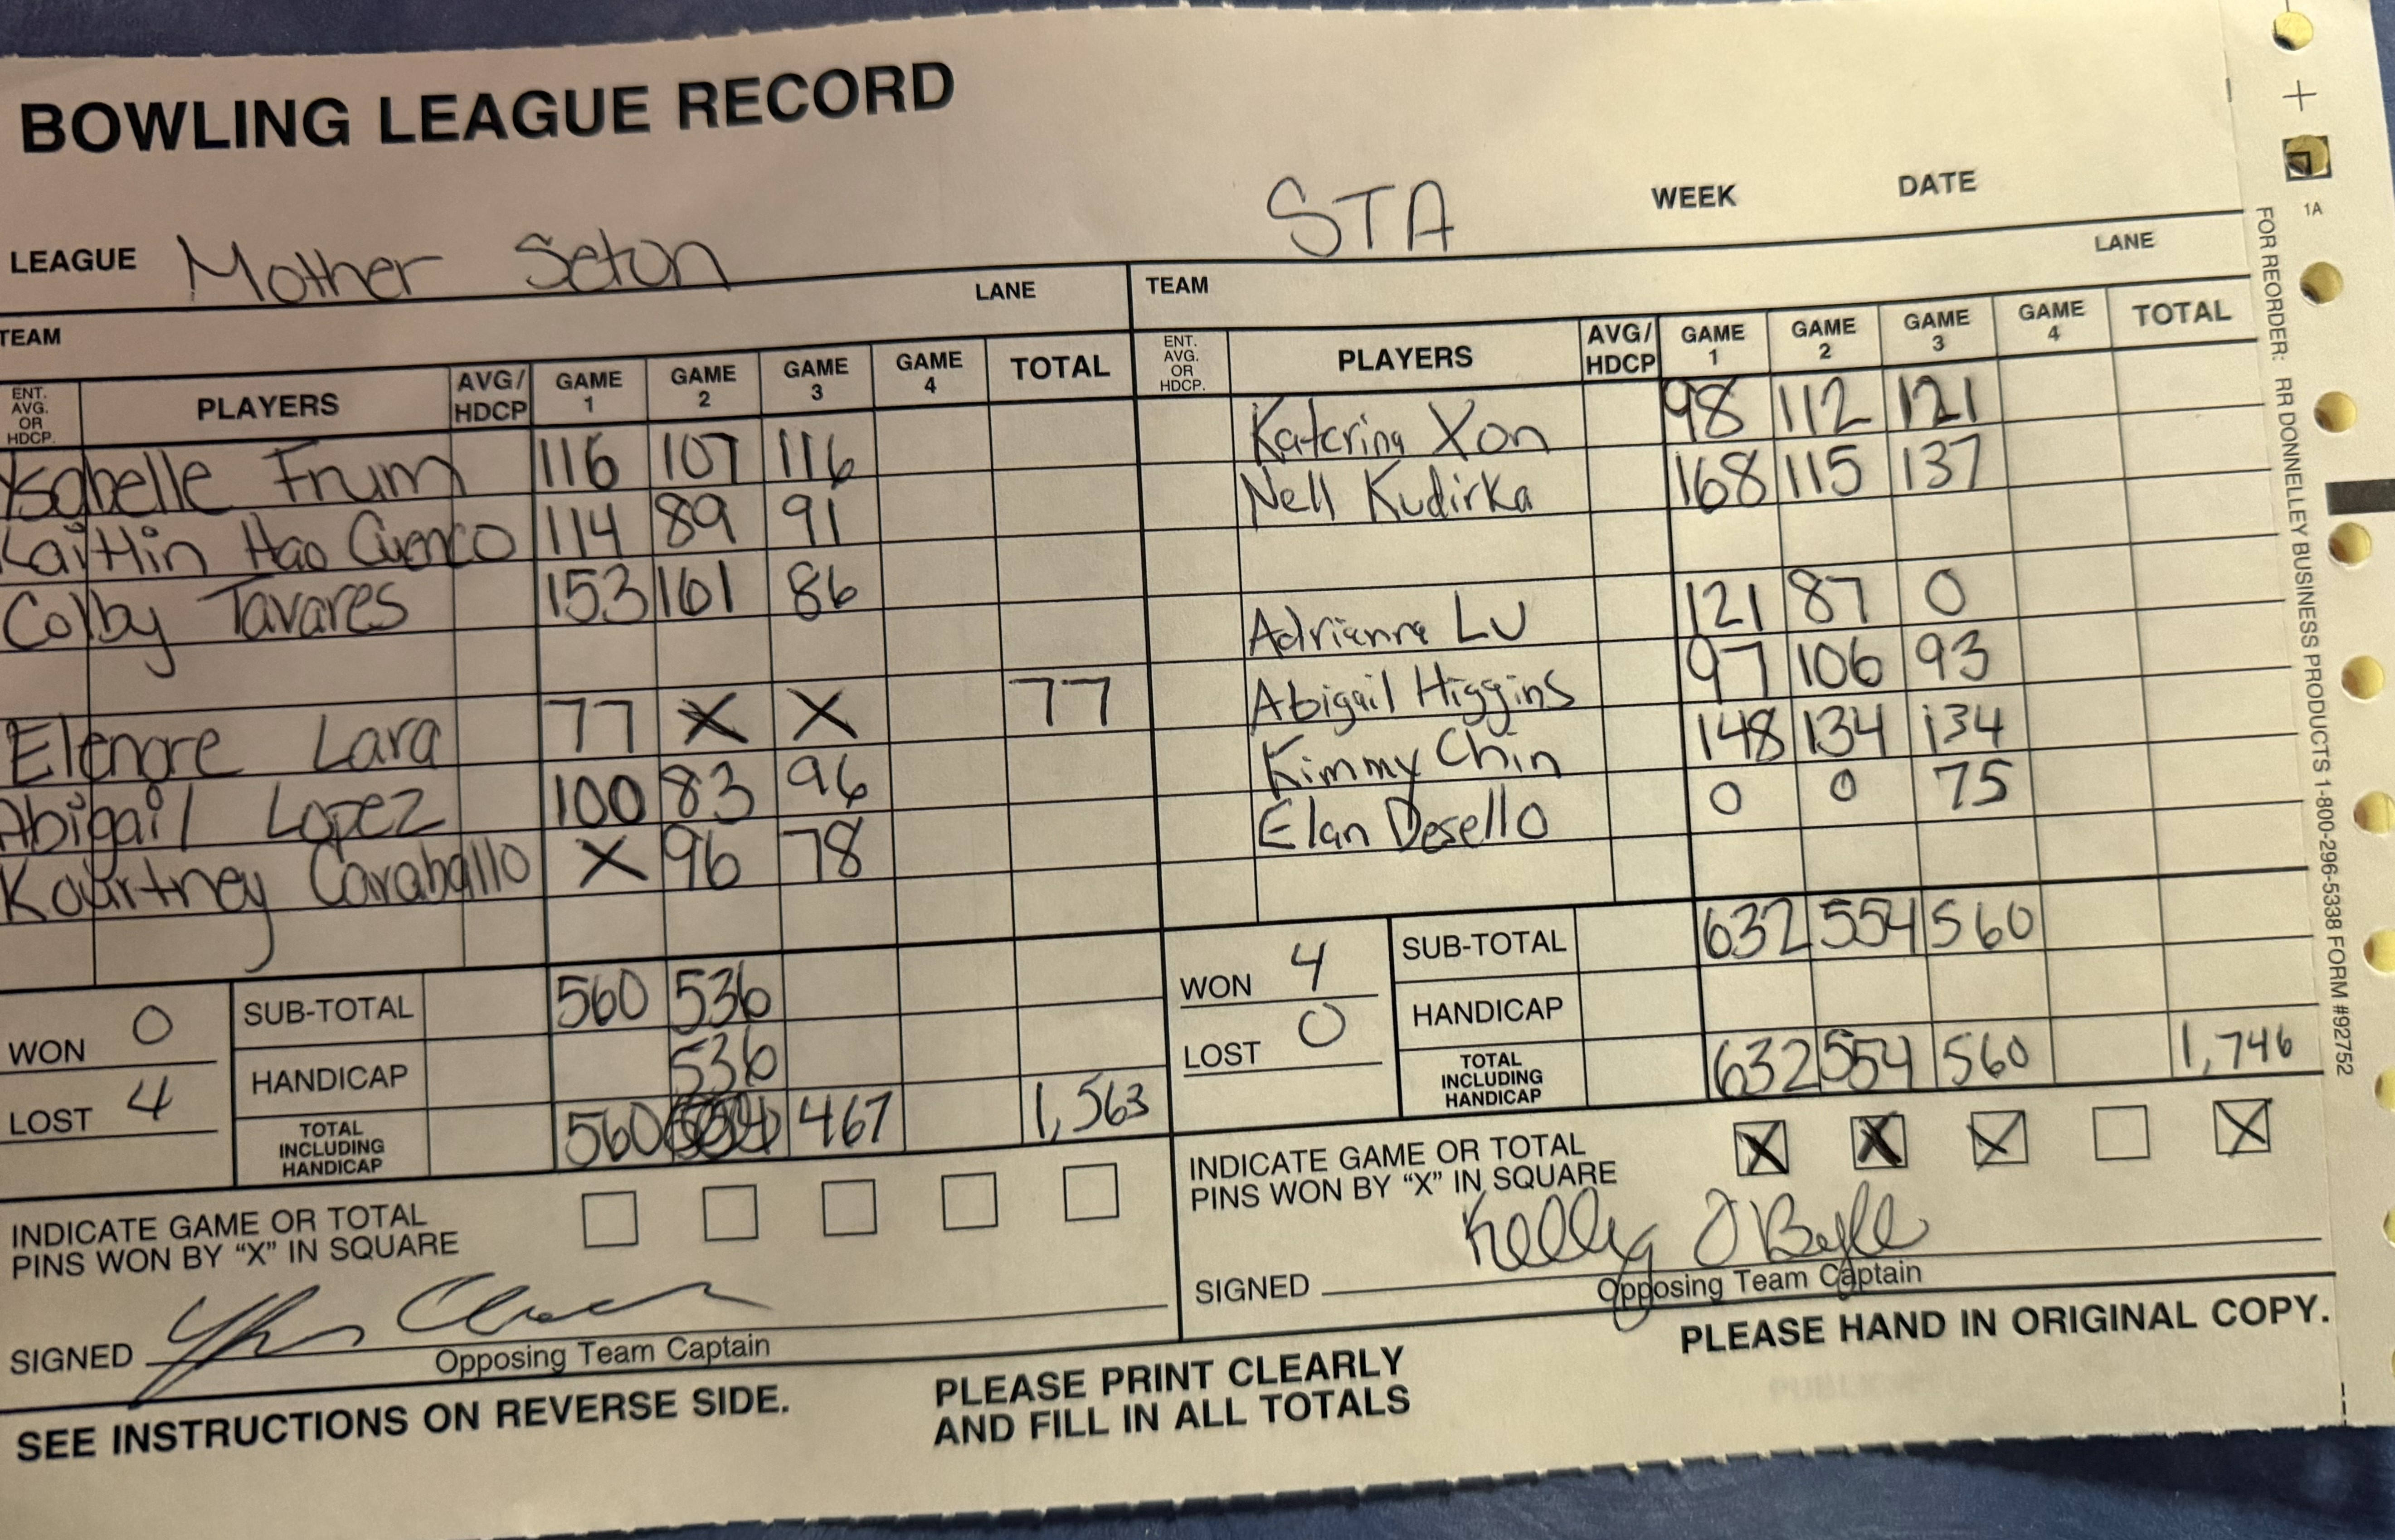 BOWLING LEAGUE RECORD
LEAGUE Mother Seton
STA
WEEK
DATE
TEAM
LANE
ENT. AVG. OR HDCP.
PLAYERS
AVG/ HDCP
GAME 1
GAME 2
GAME 3
GAME 4
TOTAL
Ysabelle Frum 116 107 116
Kaithin Hao Cuenco 114 89 91
Colby Tavares 153 161 86
Elenore Lara 77 X X 77
Abigail Lopez 100 83 96
Kourtney Caraballo X 96 78
WON 0
LOST 4
SUB-TOTAL 560 536
HANDICAP 536
TOTAL INCLUDING HANDICAP 560 467 1,563
INDICATE GAME OR TOTAL
PINS WON BY “X” IN SQUARE
SIGNED
Opposing Team Captain
TEAM
LANE
ENT. AVG. OR HDCP.
PLAYERS
AVG/ HDCP
GAME 1
GAME 2
GAME 3
GAME 4
TOTAL
Katerina Xon 98 112 121
Nell Kudirka 168 115 137
Adrianna Lu 121 87 0
Abigail Higgins 97 106 93
Kimmy Chin 148 134 134
Elan Desello 0 0 75
WON 4
LOST 0
SUB-TOTAL 632 554 560
HANDICAP
TOTAL INCLUDING HANDICAP 632 554 560 1,746
INDICATE GAME OR TOTAL
PINS WON BY “X” IN SQUARE X X X X
SIGNED Kelly O'Boyle
Opposing Team Captain
SEE INSTRUCTIONS ON REVERSE SIDE.
PLEASE PRINT CLEARLY
AND FILL IN ALL TOTALS
PLEASE HAND IN ORIGINAL COPY.
1A
FOR REORDER: RR DONNELLEY BUSINESS PRODUCTS 1-800-296-5338 FORM #92752